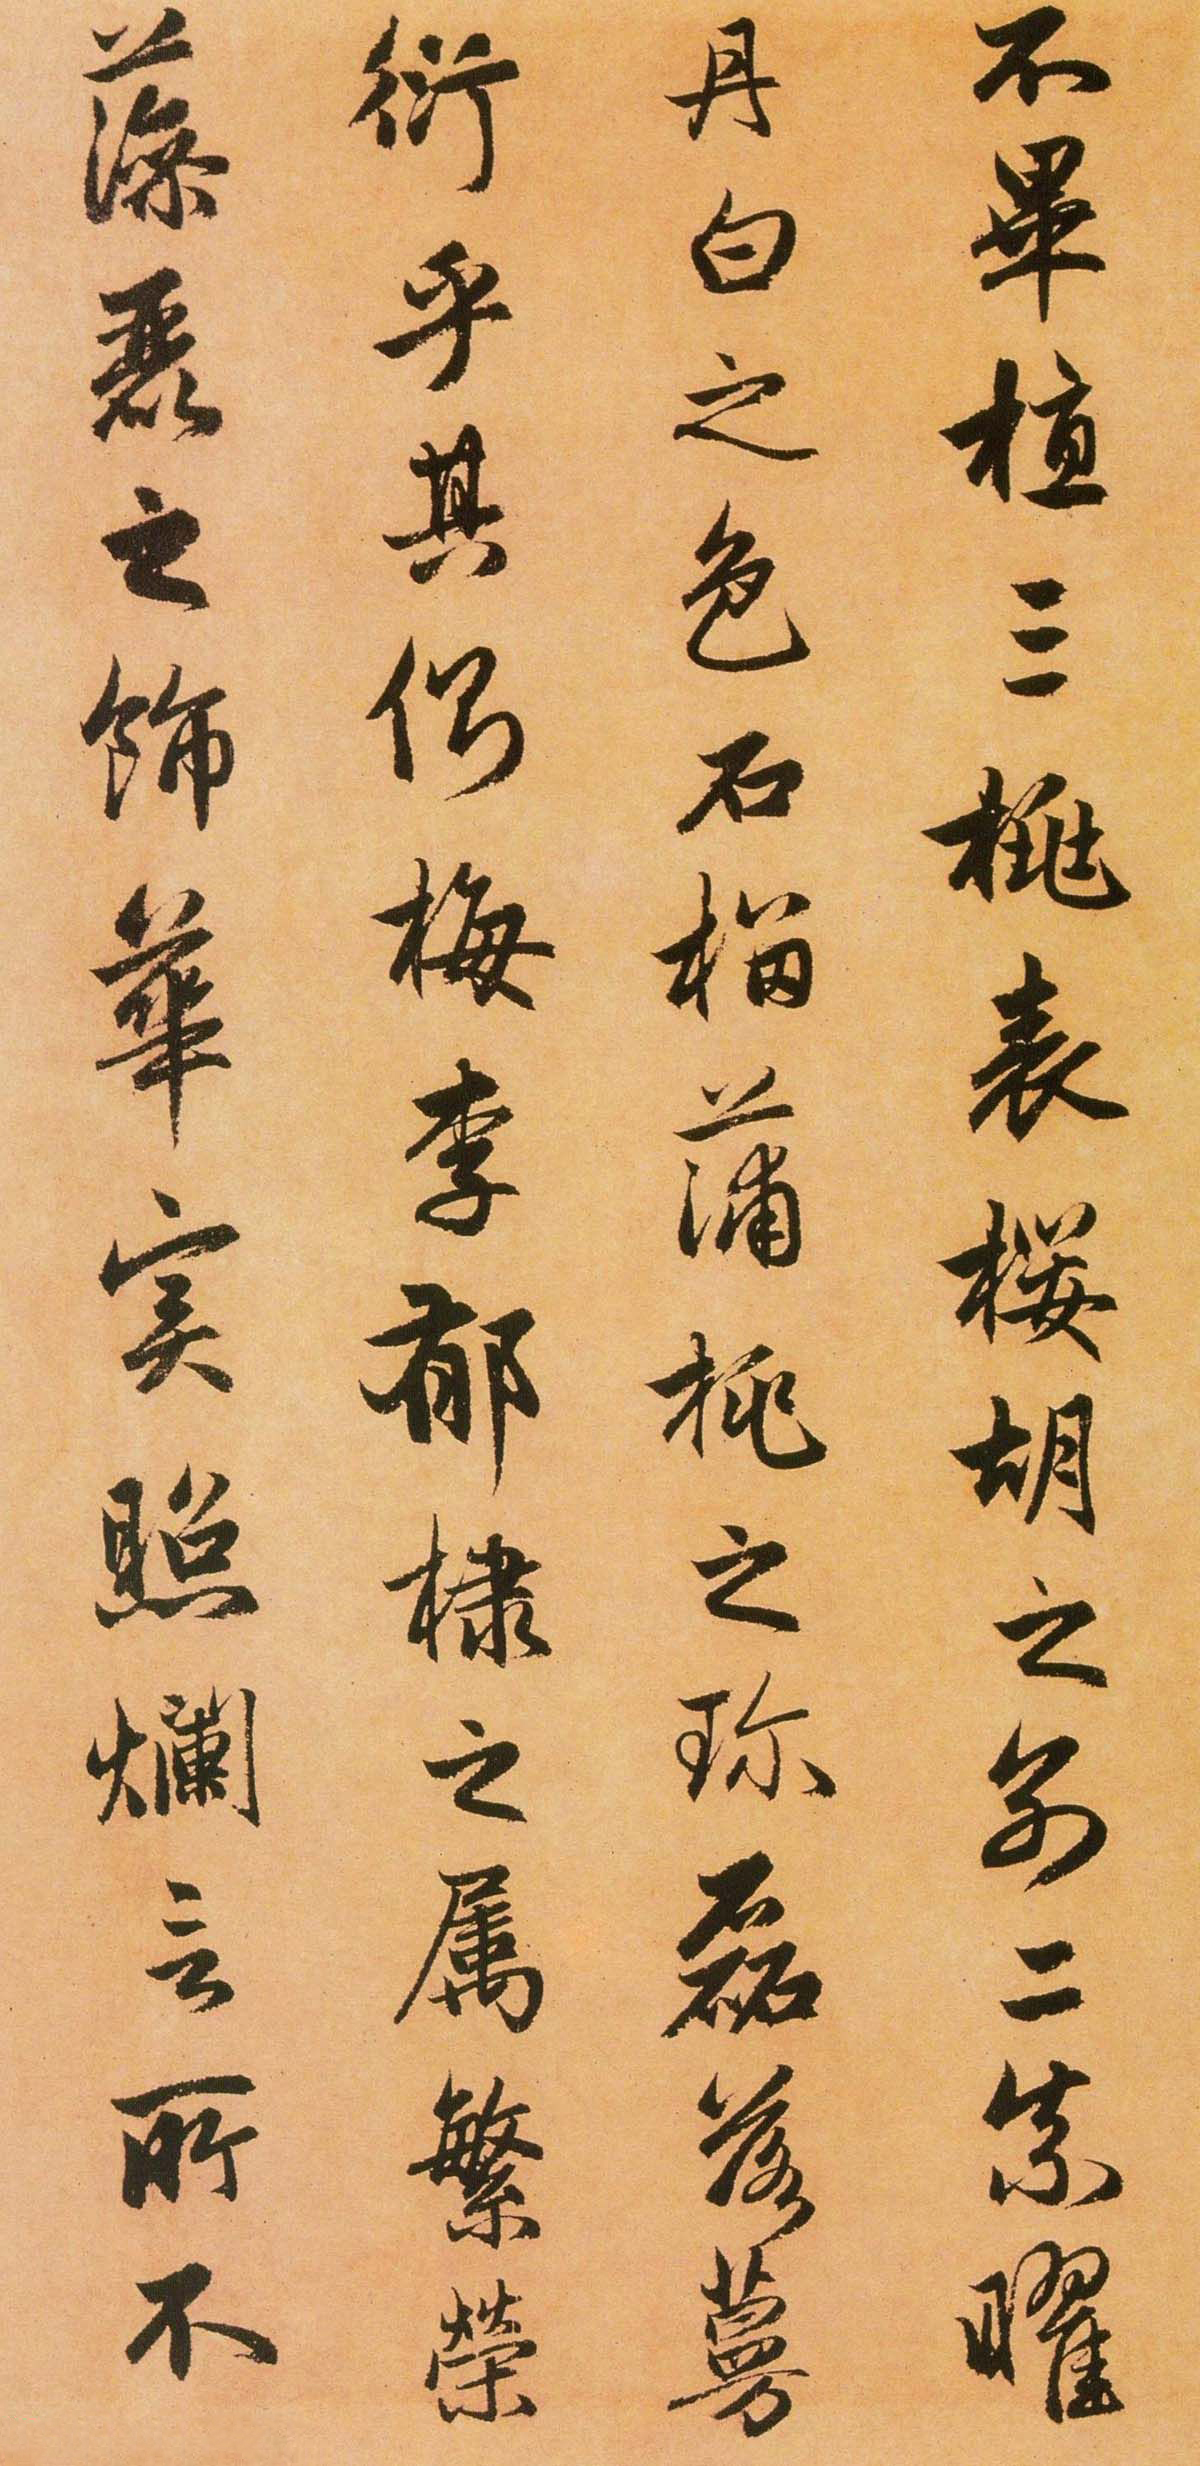 不畢植三桃表櫻胡之别二柰曜
丹白之色石榴蒲桃之珎磊落蔓
衍乎其側梅李郁棣之属繁榮
藻麗之飾華實照爛言所不